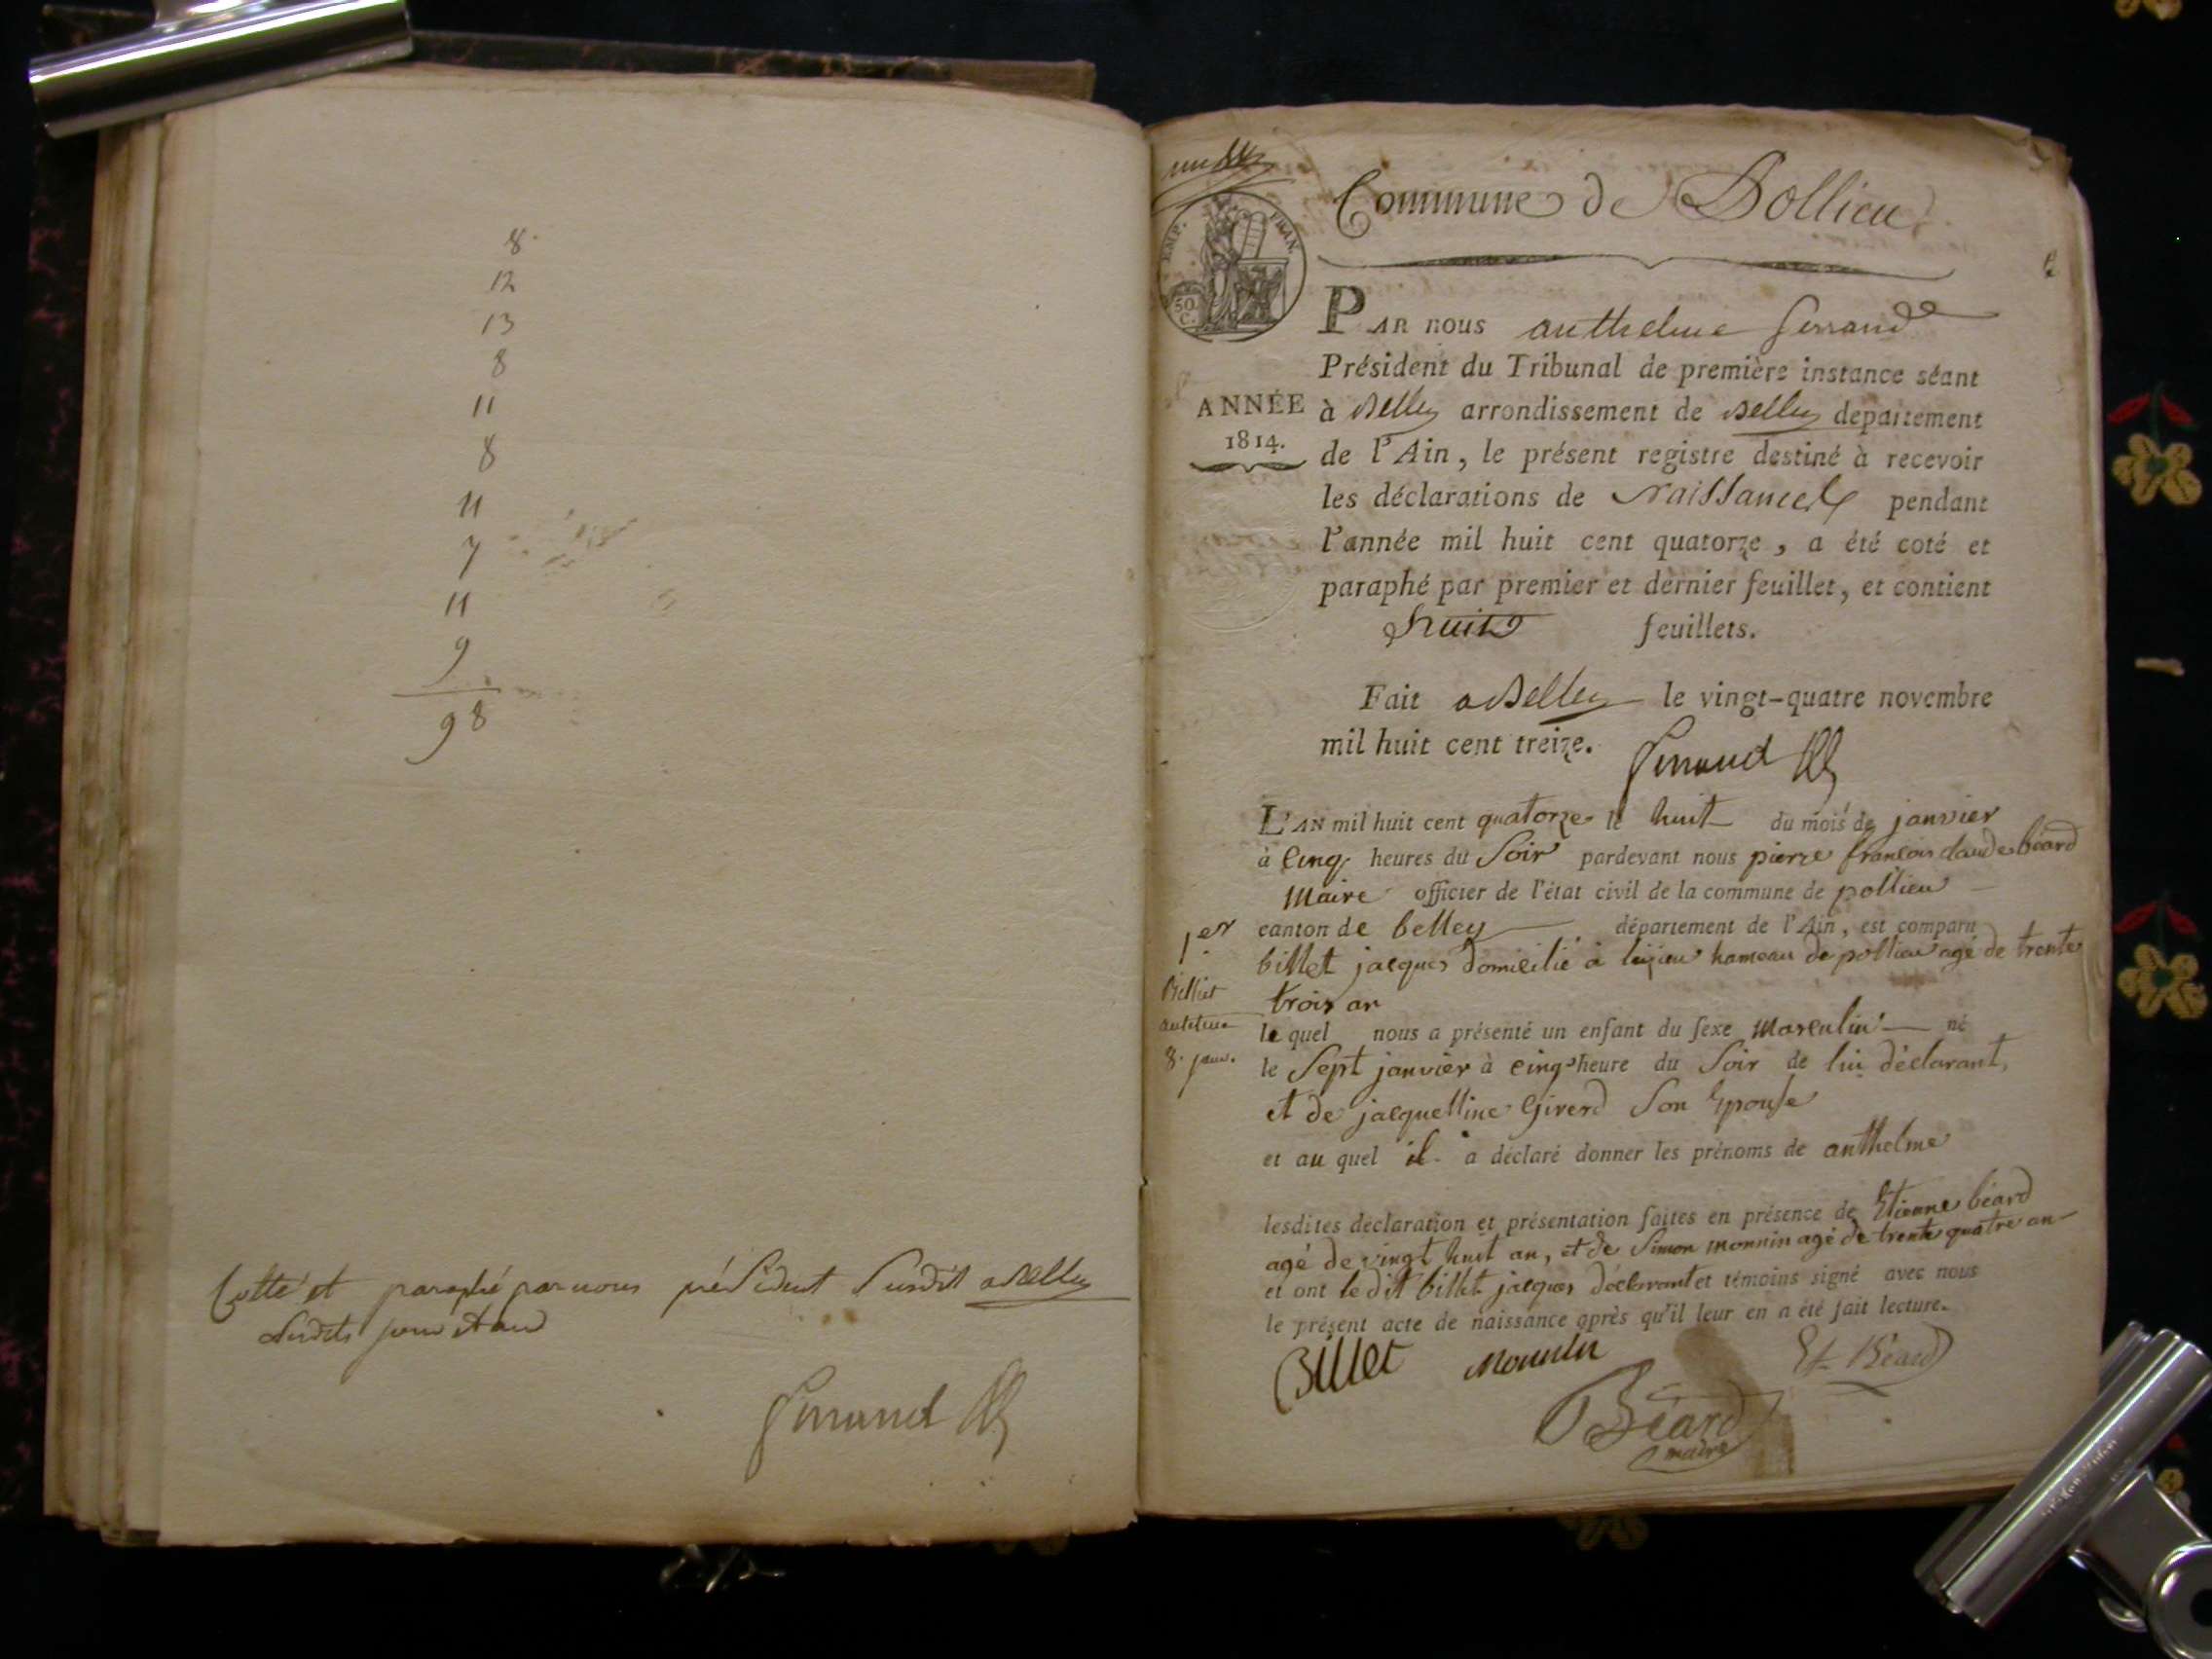 8
12
13
8
11
8
11
7
11
9
98
Cotté et paraphé par nous président susdit à Belley
susdits jour et an
Commune de Pollieu
EMP. FRAN.
50 C.
PAR nous anthelme ferrand
Président du Tribunal de première instance séant
ANNÉE
1814.
à Belley arrondissement de Belley departement
de l'Ain, le présent registre destiné à recevoir
les déclarations de Naissances pendant
l'année mil huit cent quatorze, a été coté et
paraphé par premier et dernier feuillet, et contient
huit feuillets.
Fait a Belley le vingt-quatre novembre
mil huit cent treize.
L'AN mil huit cent quatorze le huit du mois de janvier
à Cinq heures du Soir pardevant nous pierre françois claude béard
Maire officier de l'état civil de la commune de pollieu
canton de belley département de l'Ain, est comparu
billet jacques domicilié à hameau de pollieu agé de trente
trois an
1er
Billiet
anthelme
8. janv.
le quel nous a présenté un enfant du sexe Masculin né
le Sept janvier à cinq heure du Soir de lui déclarant,
et de jacquelline Giverd Son Epouse
et au quel il a déclaré donner les prénoms de anthelme
lesdites déclaration et présentation faites en présence de Etienne béard
agé de vingt huit an, et de Simon monnin agé de trente quatre an
et ont ledit billet jacques déclarant et témoins signé avec nous
le présent acte de naissance après qu'il leur en a été fait lecture.
Billet Monnin Et. Béard
Béard
maire